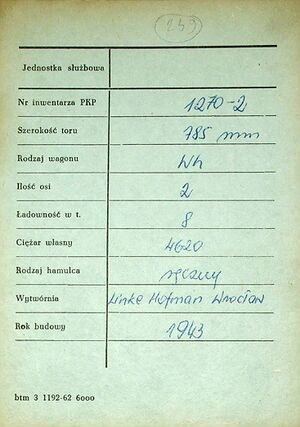 249
Jednostka służbowa
Nr inwentarza PKP 1270-2
Szerokość toru 785 mm
Rodzaj wagonu Wh
Ilość osi 2
Ładowność w t. 8
Ciężar własny 4620
Rodzaj hamulca ręczny
Wytwórnia Linke Hofman Wrocław
Rok budowy 1943
btm 3 1192-62 6ooo